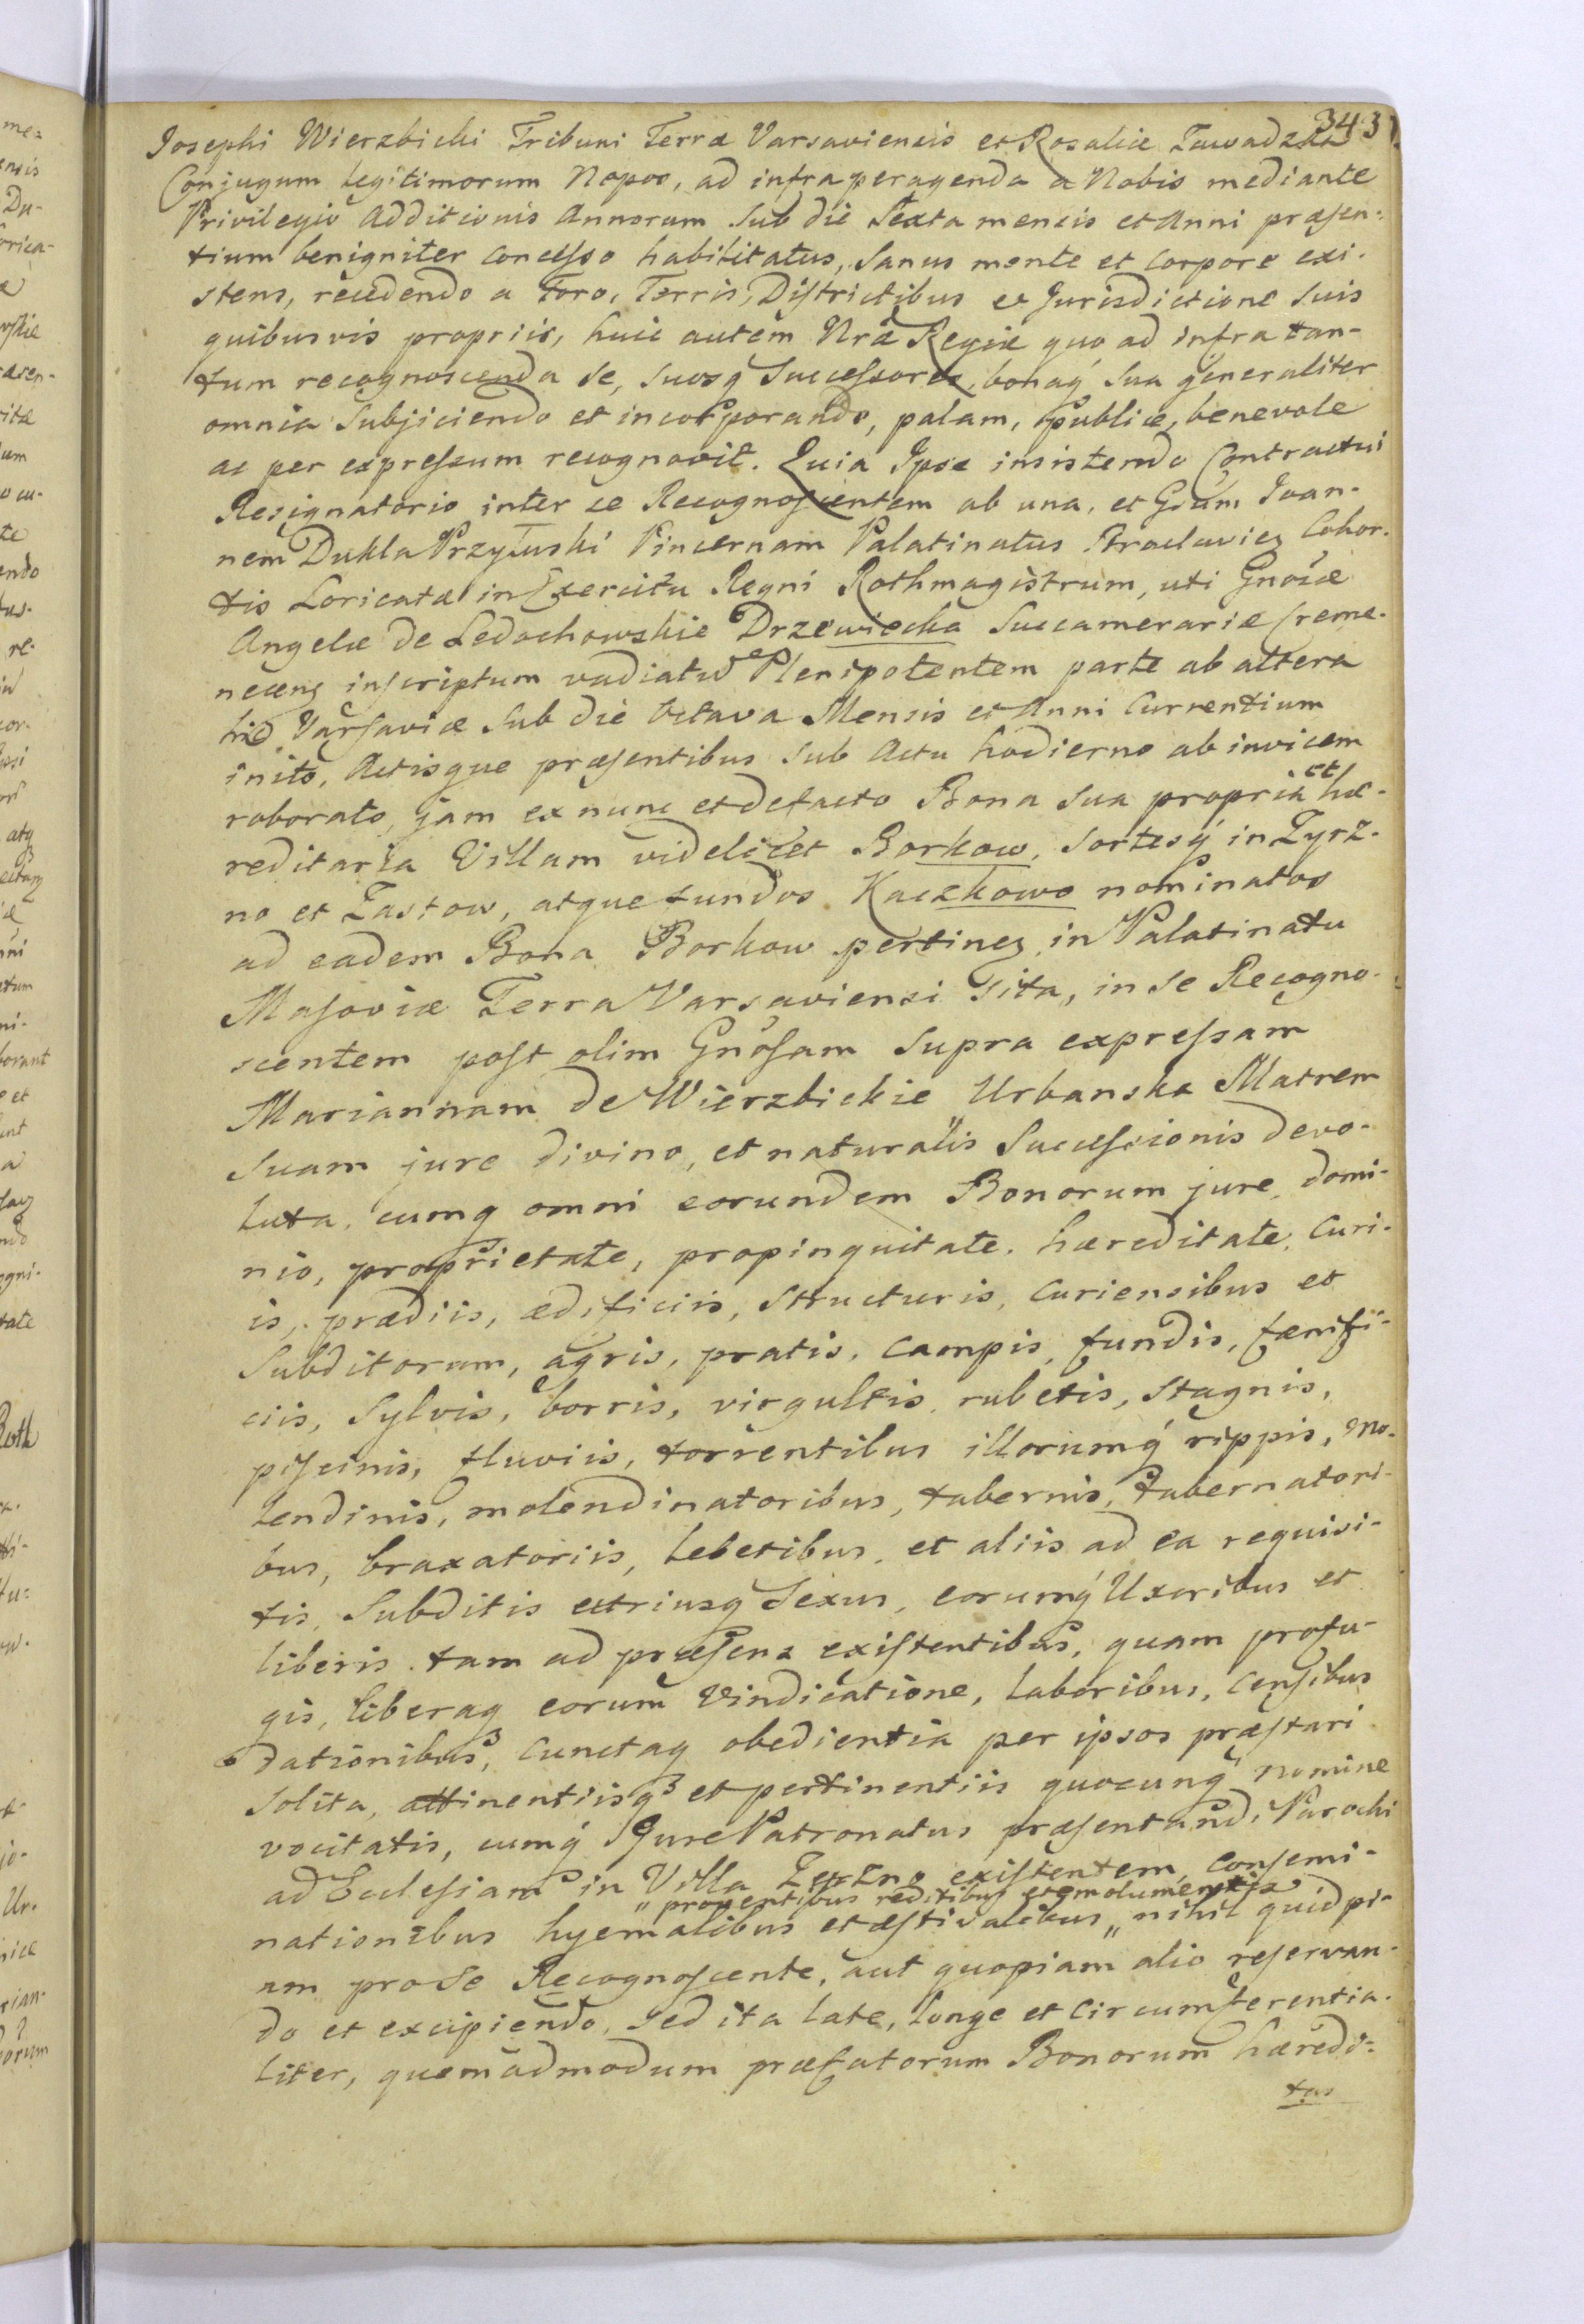 343
Josephi Wierzbicki Tribuni Terræ Varsaviensis et Rosaliæ Zawadzka
Conjugum legitimorum Nepos, ad infra peragenda a Nobis mediante
Privilegio additionis Annorum sub die Sexta mensis et Anni præsen-
tium benigniter concesso habilitatus, Sanus mente et corpore exi-
stens, recedendo a Foro, Terris, Districtibus et Jurisdictione suis
quibusvis propriis, huic autem Nræ Regiæ quo ad infra tan-
tum recognoscenda se, suosq Successores, bonaq sua generaliter
omnia Subjiciendo et incorporando, palam, publice, benevole
ac per expressum recognovit. Quia Ipse insistendo Contractui
Resignatorio inter se Recognoscentem ab una, et Gsum Joan-
nem Dukla Przyłuski Pincernam Palatinatus Braclaviens Cohor-
tis Loricatæ in Exercitu Regni Rothmagistrum, uti Gnosæ
Angelæ de Ledochowskie Drzewiecka Succamerariæ Creme-
necens inscriptum vadiatum Plenipotentem parte ab altera
hic Varsaviæ sub die Octava Mensis et Anni Currentium
inito, Actisque præsentibus sub Actu hodierno ab invicem
roborato, jam ex nunc et defacto Bona sua propria et hæ-
reditaria Villam videlicet Borkow, Sortesq in Zyrz-
no et Zastow, atque fundos Kaczkowo nominatos
ad eadem Bona Borkow pertinen, in Palatinatu
Masoviæ Terra Varsaviensi sita, in se Recogno-
scentem post olim Gnosam supra expressam
Mariannam de Wierzbickie Urbanska Matrem
suam jure divino, et naturalis Successionis devo-
luta, cumq omni eorundem Bonorum jure, domi-
nio, proprietate, propinquitate, hæreditate, Curi-
is, prædiis, ædificiis, structuris, Curiensibus et
Subditorum, agris, pratis, campis, fundis, fænifi-
ciis, Sylvis, borris, virgultis, rubetis, stagnis,
piscinis, fluviis, torrentibus illorumq rippis, mo-
lendinis, molendinatoribus, tabernis, tabernatori-
bus, braxatoriis, lebetibus, et aliis ad ea requisi-
tis, Subditis utriusq Sexus, eorumq Uxoribus et
liberis tam ad præsens existentibus, quam profu-
gis, liberaq eorum vindicatione, laboribus, censibus
dationibus, cunctaq obedientia per ipsos præstari
solita, attinentiisq et pertinentiis quocunq nomine
vocitatis, cumq Jure Patronatus præsentand. Parochi
ad Ecclesiam in Villa Zerzno existentem, consemi-
" proventibus reditibus et emolumentis
nationibus hyemalibus et æstivalibus " nihil quidpi-
am pro se Recognoscente, aut quopiam alio reservan-
do et excipiendo, sed ita late, longe et circumferentia-
liter, quemadmodum præfatorum Bonorum hæredi-
tas